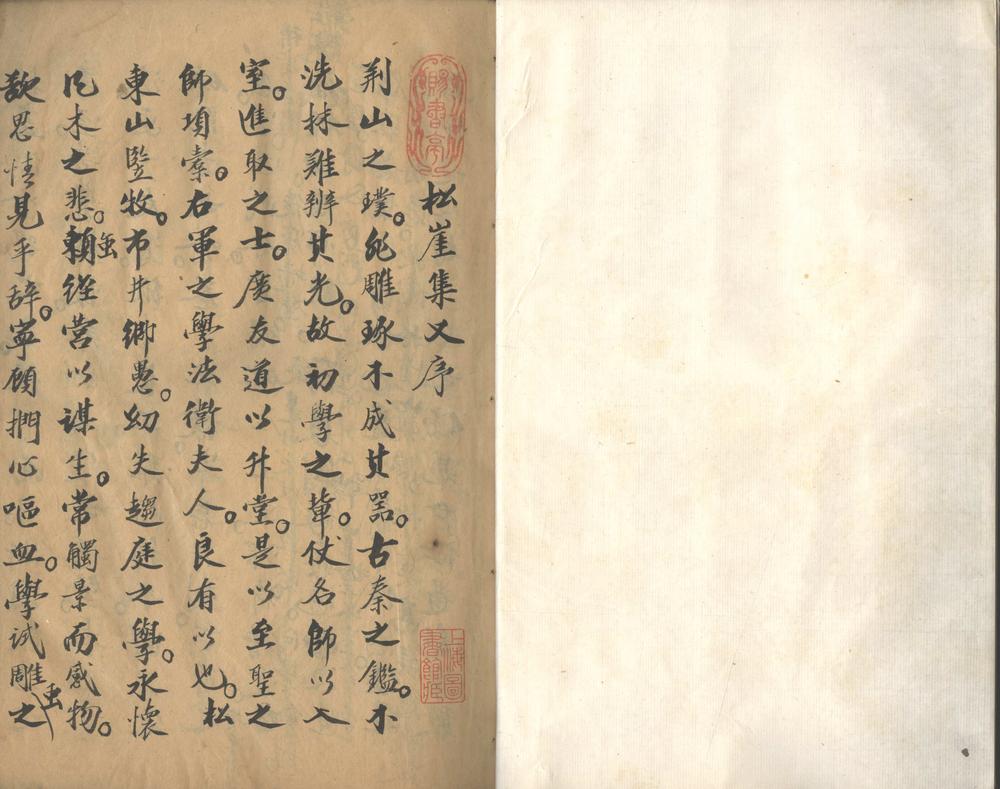 松崖集又序
荆山之璞。非雕琢不成其器。古秦之鑑。不
洗抹難辨其光。故初學之輩。仗名師以入
室。進取之士。廣友道以升堂。是以至聖之
師項橐。右軍之學法衛夫人。良有以也。松
東山豎牧。市井鄉愚。幼失趨庭之學。永懷
風木之悲。虽賴經營以謀生。常觸景而感物。
欲思情見乎辞。寧顧捫心嘔血。學試雕虫之
上海圖書館藏